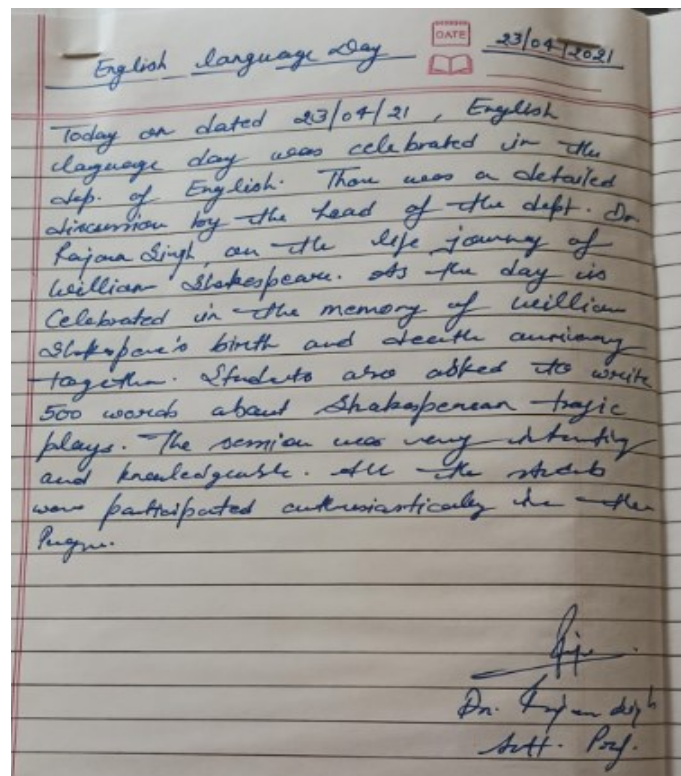 English language Day
DATE
23/04/2021
Today on dated 23/04/21, English
laguage day was celebrated in the
dep. of English. There was a detailed
discussion by the head of the dept. Dr.
Singh, on the life journey of
William Shakespeare. As the day is
Celebrated in the memory of William
birth and death
together. Students also asked to write
500 words about Shakespearean tragic
plays. The session was very
and knowledgeable. All the
were participated enthusiastically in the
Dr.
Prof.